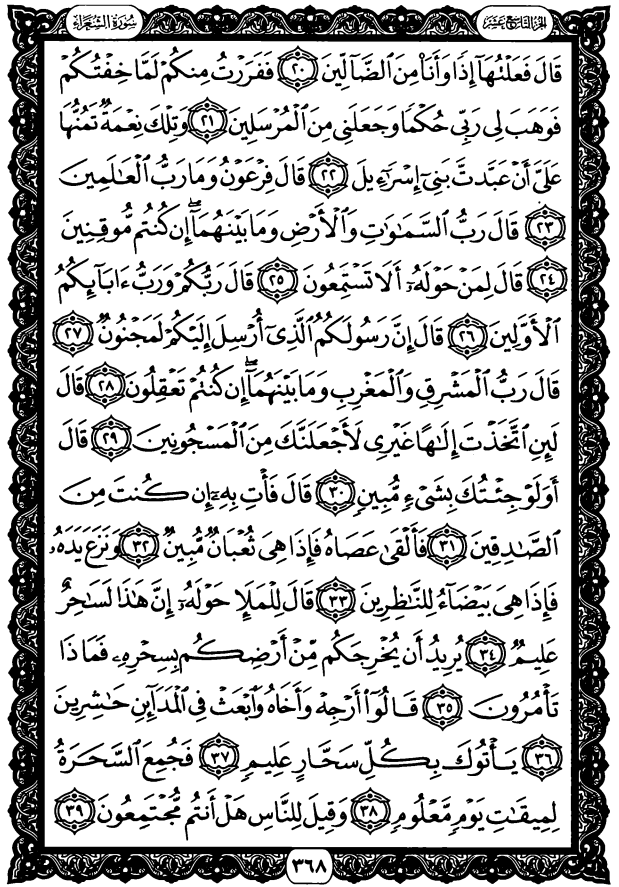 الجزء التاسع عشر
سورة الشعراء
قَالَ فَعَلْتُهَآ إِذًا وَأَنَا۠ مِنَ ٱلضَّآلِّينَ ﴿٢٠﴾ فَفَرَرْتُ مِنكُمْ لَمَّا خِفْتُكُمْ
فَوَهَبَ لِى رَبِّى حُكْمًا وَجَعَلَنِى مِنَ ٱلْمُرْسَلِينَ ﴿٢١﴾ وَتِلْكَ نِعْمَةٌ تَمُنُّهَا
عَلَىَّ أَنْ عَبَّدتَّ بَنِىٓ إِسْرَٰٓءِيلَ ﴿٢٢﴾ قَالَ فِرْعَوْنُ وَمَا رَبُّ ٱلْعَـٰلَمِينَ
﴿٢٣﴾ قَالَ رَبُّ ٱلسَّمَـٰوَٰتِ وَٱلْأَرْضِ وَمَا بَيْنَهُمَآ ۖ إِن كُنتُم مُّوقِنِينَ
﴿٢٤﴾ قَالَ لِمَنْ حَوْلَهُۥٓ أَلَا تَسْتَمِعُونَ ﴿٢٥﴾ قَالَ رَبُّكُمْ وَرَبُّ ءَابَآئِكُمُ
ٱلْأَوَّلِينَ ﴿٢٦﴾ قَالَ إِنَّ رَسُولَكُمُ ٱلَّذِىٓ أُرْسِلَ إِلَيْكُمْ لَمَجْنُونٌ ﴿٢٧﴾
قَالَ رَبُّ ٱلْمَشْرِقِ وَٱلْمَغْرِبِ وَمَا بَيْنَهُمَآ ۖ إِن كُنتُمْ تَعْقِلُونَ ﴿٢٨﴾ قَالَ
لَئِنِ ٱتَّخَذْتَ إِلَـٰهًا غَيْرِى لَأَجْعَلَنَّكَ مِنَ ٱلْمَسْجُونِينَ ﴿٢٩﴾ قَالَ
أَوَلَوْ جِئْتُكَ بِشَىْءٍ مُّبِينٍ ﴿٣٠﴾ قَالَ فَأْتِ بِهِۦٓ إِن كُنتَ مِنَ
ٱلصَّـٰدِقِينَ ﴿٣١﴾ فَأَلْقَىٰ عَصَاهُ فَإِذَا هِىَ ثُعْبَانٌ مُّبِينٌ ﴿٣٢﴾ وَنَزَعَ يَدَهُۥ
فَإِذَا هِىَ بَيْضَآءُ لِلنَّـٰظِرِينَ ﴿٣٣﴾ قَالَ لِلْمَلَإِ حَوْلَهُۥٓ إِنَّ هَـٰذَا لَسَـٰحِرٌ
عَلِيمٌ ﴿٣٤﴾ يُرِيدُ أَن يُخْرِجَكُم مِّنْ أَرْضِكُم بِسِحْرِهِۦ فَمَاذَا
تَأْمُرُونَ ﴿٣٥﴾ قَالُوٓا۟ أَرْجِهْ وَأَخَاهُ وَٱبْعَثْ فِى ٱلْمَدَآئِنِ حَـٰشِرِينَ
﴿٣٦﴾ يَأْتُوكَ بِكُلِّ سَحَّارٍ عَلِيمٍ ﴿٣٧﴾ فَجُمِعَ ٱلسَّحَرَةُ
لِمِيقَـٰتِ يَوْمٍ مَّعْلُومٍ ﴿٣٨﴾ وَقِيلَ لِلنَّاسِ هَلْ أَنتُم مُّجْتَمِعُونَ ﴿٣٩﴾
٣٦٨